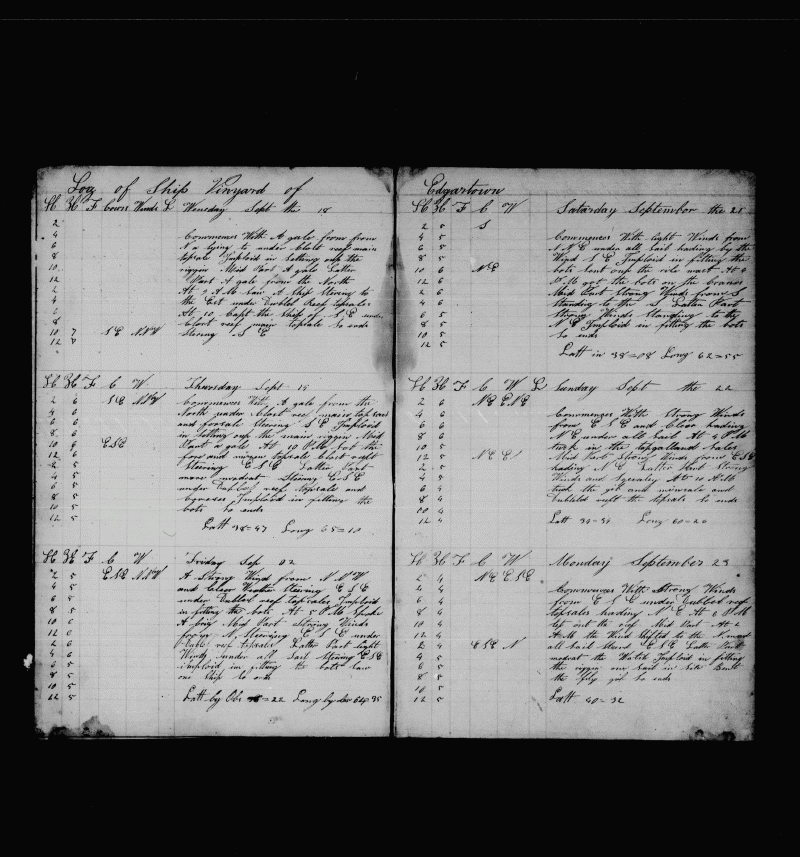 Log of Ship Vinyard of
H K F Cours Winds L Wensday Sept the 18
2
4 Commences With A gale from from
6 N a lying to under Close reef main
8 topsale Imploid in Setting oup the
10 riggen Mid Part A gale Latter
12 Part A gale from the North
2 At 7 A M Saw A Ship Stering to
4 the Est under Dubbel Reef topsales
6 At 10 Kept the Ship of S E under
8 Close reef main topsale so ends
10 7 S E N.N.W Stering S E
12 7
H K F C W Thursday Sept 19
2 6 S E N.N.W Commences With A gale from the
4 6 North under Close reef main topsail
6 6 and foresale Stering S E Imploid
8 6 in Setting oup the main riggen Mid
10 8 E S E Part a gale At 10 P M Set the
12 6 fore and mizzen topsale Close reeft
2 6 Stering E S E Latter Part
4 5 more moderat Stering E S E
6 5 under Dubbel reef topsales and
8 5 Imploid in fitting the
10 5 bots So ends
12 5
Latt 38=47 Long 65=10
H K F C W Friday Sep 02
2 5 E S E N.N.W A Strong Wind from N N W
4 5 and Clear Weather Stering E S E
6 5 under Dubbel reef topsales Imploid
8 5 in fitting the bots At 5 P M Spoke
10 6 A brig Mid Part Strong Winds
12 6 from N Steering E S E under
2 6 Dubl reef topsales Latter Part Light
4 6 Winds under all Sail Stering E S E
6 5 imploid in fitting to bots Saw
8 5 one Ship So ends
10 5
12 5 Latt by Obs =22 Long by 64= 35
Edgartown
H K F C W Saturday September the 21
2 5 S
4 5 Commences With light Winds from
6 5 N N E under all Sail heading by the
8 5 Wind S E Imploid in fitting the
10 6 N E bots Sent oup the rile mast At 4
12 6 P M got the bots on the Cranes
2 6 Mid Part Strong Winds from S
4 6 Standing to the E Latter Part
6 5 Strong Winds Standing to the
8 5 N E Imploid in fitting the bots
10 5 So ends
12 5
Latt in 38=08 Long 62=55
H K F C W L Sunday Sept the 22
2 6 N E E N E
4 6 Commences With Strong Winds
6 6 from E S E and Clear heading
8 6 N E under all Sail At 4 P M
10 5 took in the topgalland Sales
12 5 N E E S Mid Part Strong Winds from E S E
2 5 heading N E Latter Part Strong
4 5 Winds and Squaley At 10 A M
6 4 took the gib and mainsale and
8 4 Dubbled reeft the topsale So ends
00 4
12 4 Latt 39=34 Long 60=20
H K F C W Monday September 23
2 4 N E E S E
4 4 Commences With Strong Winds
6 4 from E S E under Dubbel reef
8 4 topsales heading N E At 6 P M
10 4 let out the reef Mid Part At 2
12 4 A M the Wind Shifted to the N maid
2 4 E S E N all Sail Sterd E S E Latter Part
4 5 moderat the Watch Imploid in fitting
6 5 the riggen one Sail in Site Bent
8 5 the fliy gib So ends
10 5
12 5 Latt 40=32